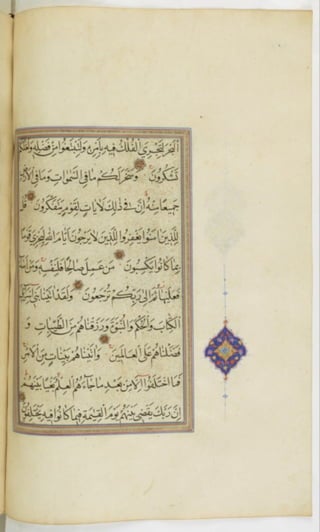 البحر لتجري الفلك فيه بامره ولتبتغوا من فضله ولعلكم
تشكرون وسخر لكم ما في السموات وما في الارض
جميعا منه ان في ذلك لايات لقوم يتفكرون قل
للذين امنوا يغفروا للذين لا يرجون ايام الله ليجزي قوما
بما كانوا يكسبون من عمل صالحا فلنفسه ومن اساء
فعليها ثم الى ربكم ترجعون ولقد اتينا بني اسرائيل
الكتاب والحكم والنبوة ورزقناهم من الطيبات و
فضلناهم على العالمين واتيناهم بينات من الامر
فما اختلفوا الا من بعد ما جاءهم العلم بغيا بينهم
ان ربك يقضي بينهم يوم القيمة فيما كانوا فيه يختلفون